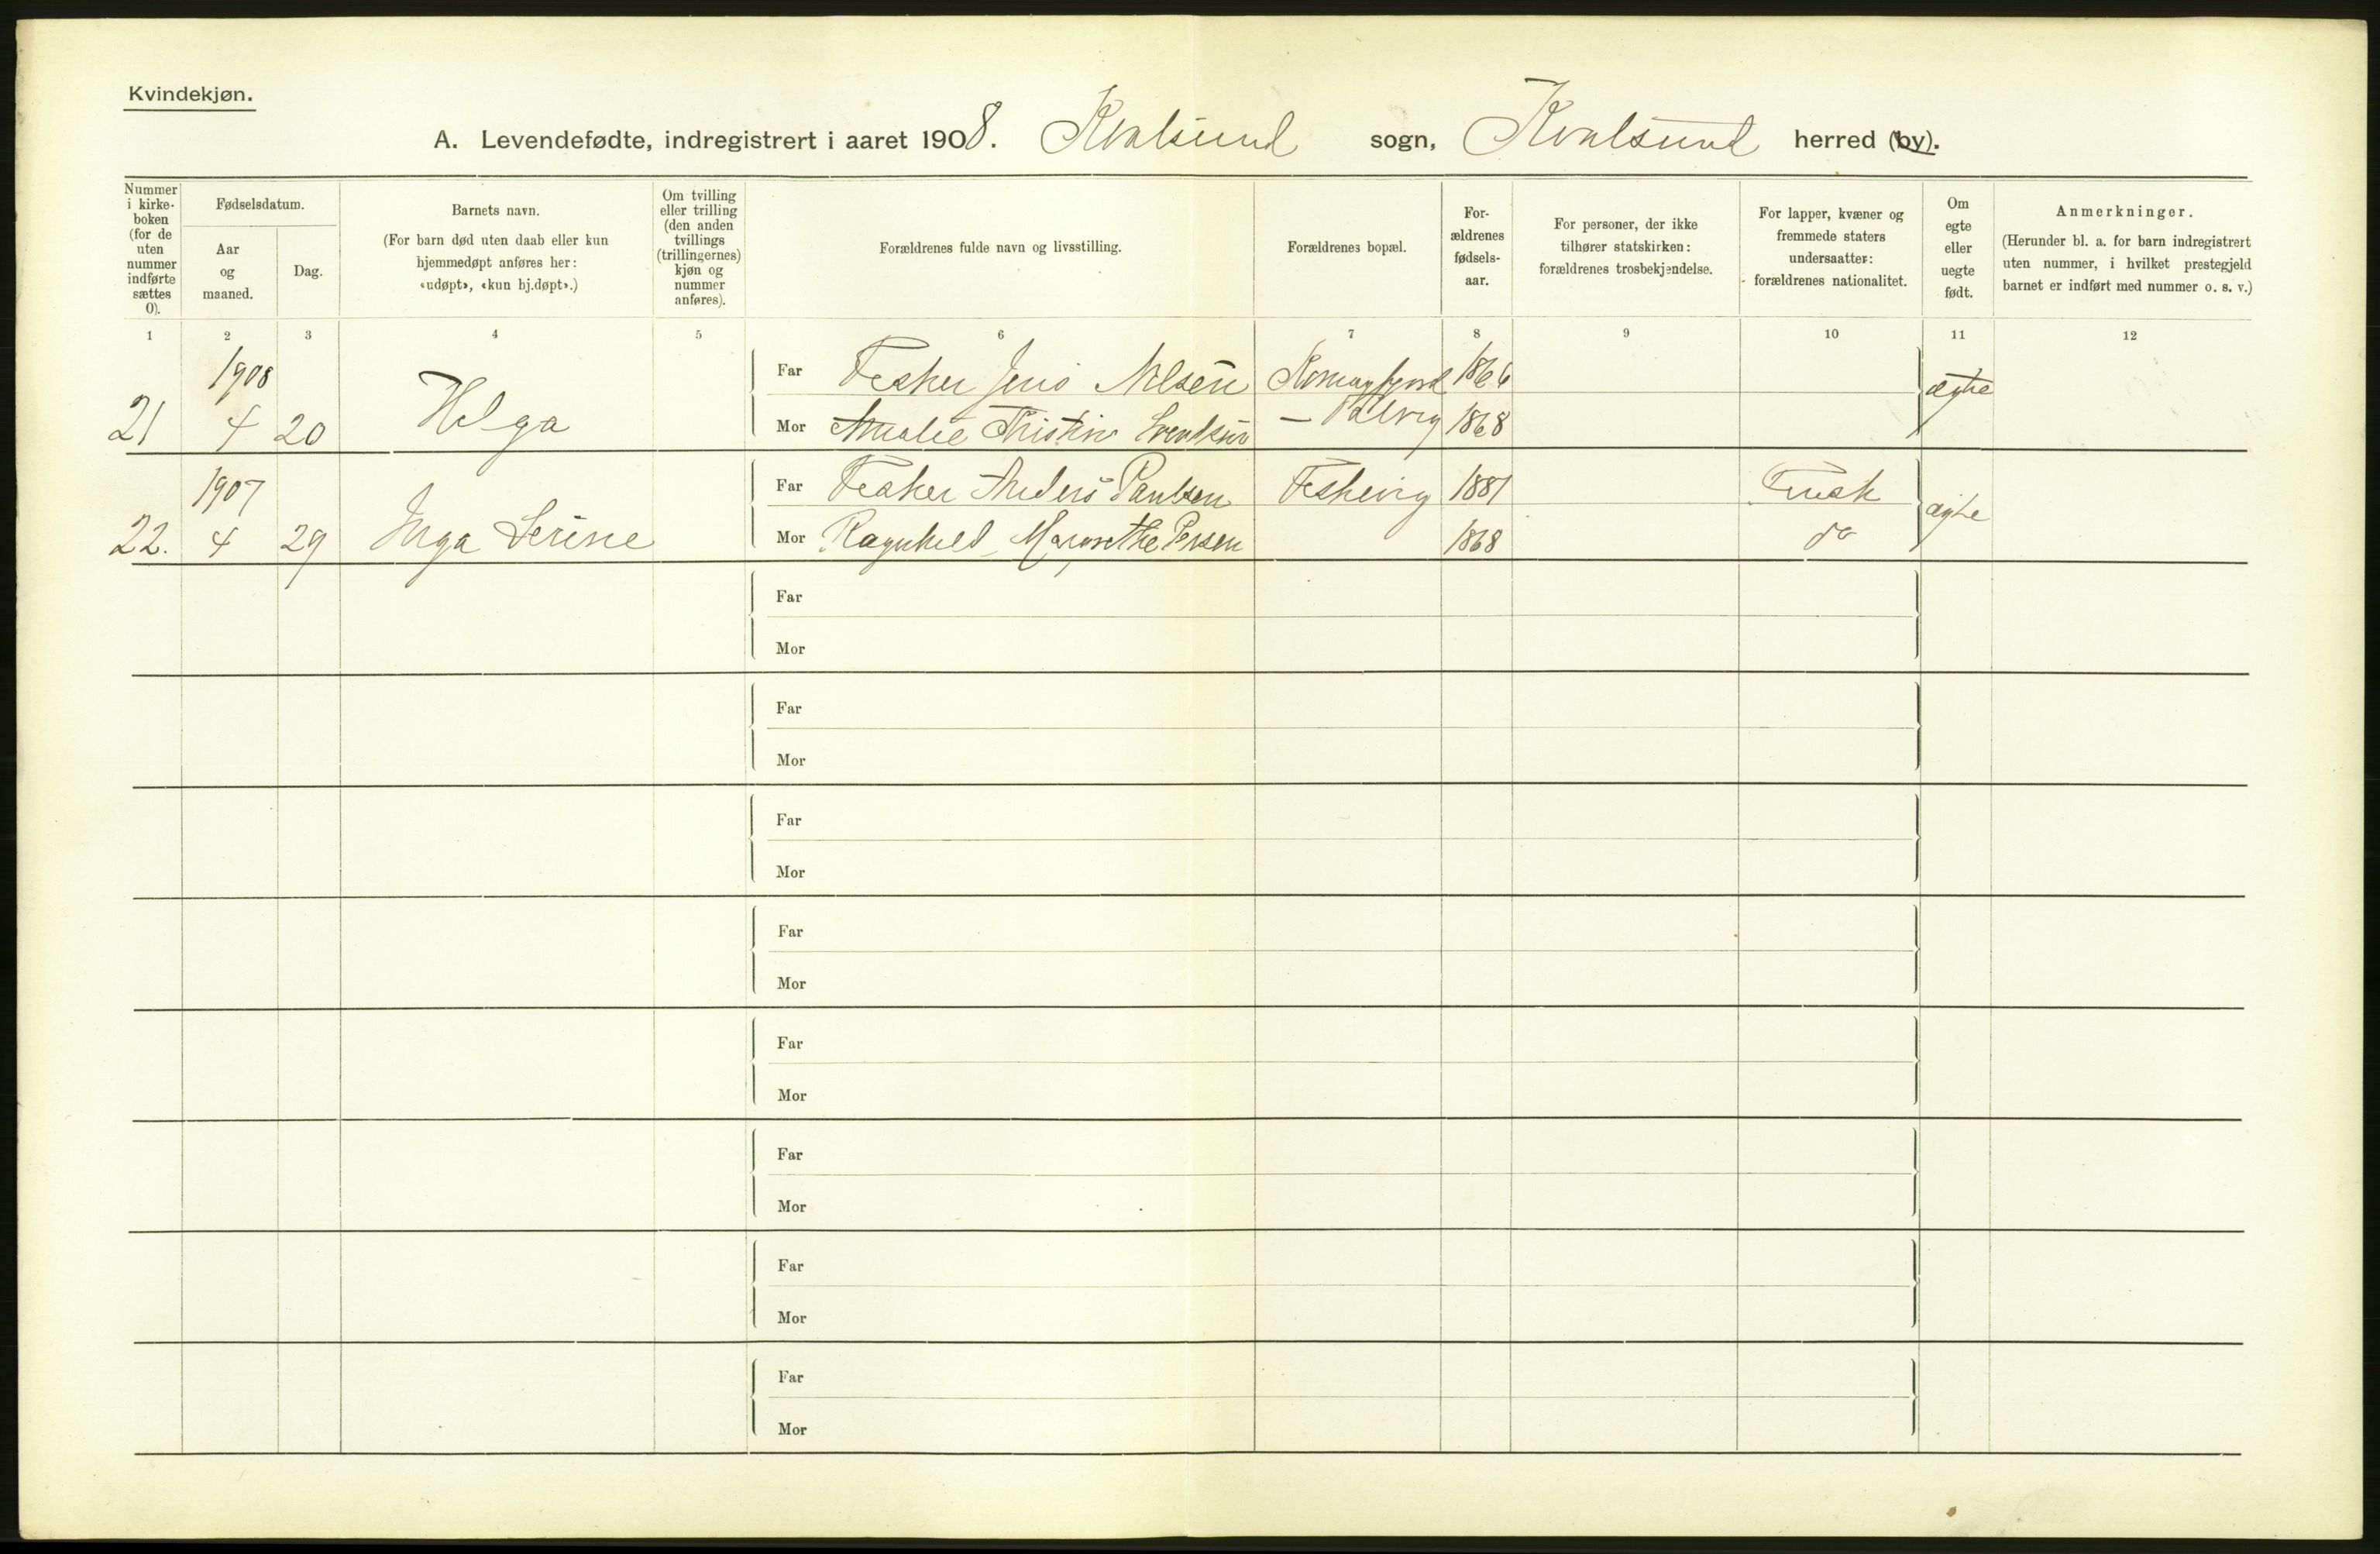 Kvindekjøn.
A. Levendefødte, indregistrert i aaret 1908. Kvalsund sogn, Kvalsund herred (by).
Nummer i kirke-boken (for de uten nummer indførte sættes 0).
Fødselsdatum.
Aar og maaned.
Dag.
Barnets navn.
(For barn død uten daab eller kun hjemmedøpt anføres her: «udøpt», «kun hj.døpt».)
Om tvilling eller trilling (den anden tvillings (trillingernes) kjøn og nummer anføres).
Forældrenes fulde navn og livsstilling.
Forældrenes bopæl.
For-ældrenes fødsels-aar.
For personer, der ikke tilhører statskirken: forældrenes trosbekjendelse.
For lapper, kvæner og fremmede staters undersaatter: forældrenes nationalitet.
Om egte eller uegte født.
Anmerkninger.
(Herunder bl. a. for barn indregistrert uten nummer, i hvilket prestegjeld barnet er indført med nummer o. s. v.)
1 2 3 4 5 6 7 8 9 10 11 12
1908
21 4 20 Helga
Far Fisker Jens Nilsen 1866 ægte
Mor Amalie Kristine 1868
1907
22. 4 29 Inga Serine
Far Fisker Anders Paulsen Fiskevig 1881 Finsk ægte
Mor Ragnhild Margrethe Persen 1868 do
Far
Mor
Far
Mor
Far
Mor
Far
Mor
Far
Mor
Far
Mor
Far
Mor
Far
Mor